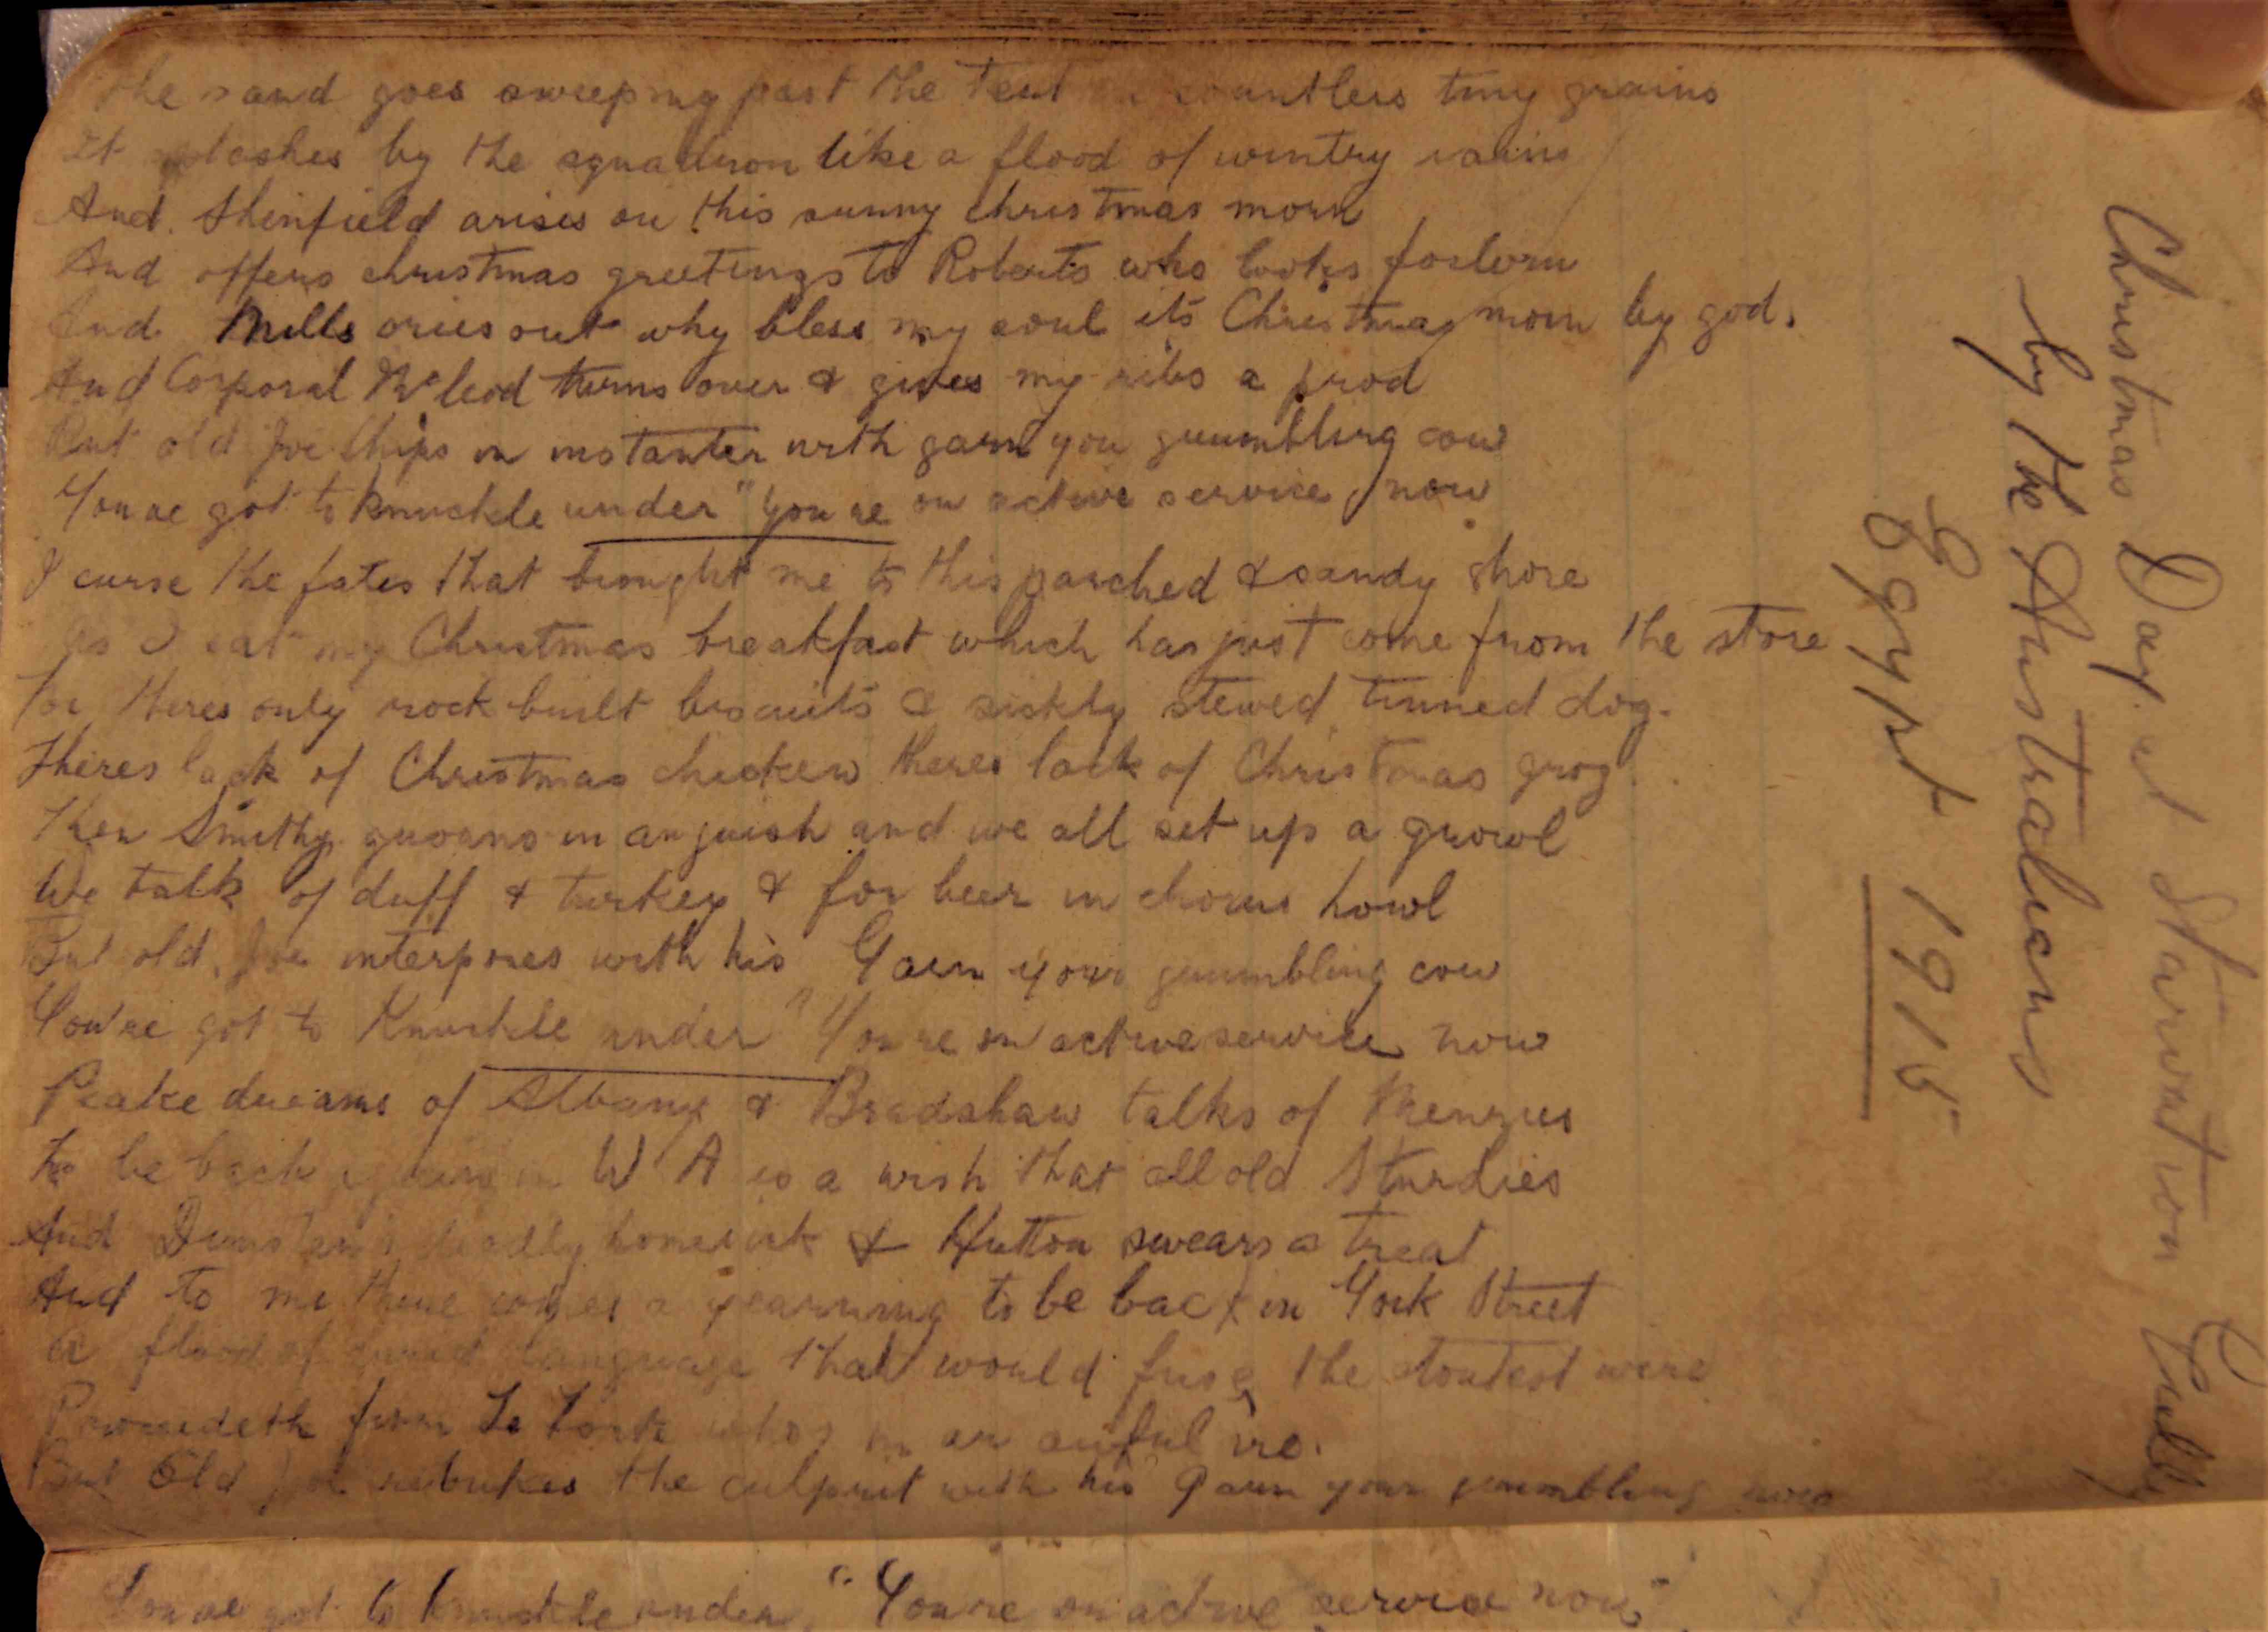 Christmas Day at Starvation Gully
by the Australians
Egypt 1915
The sand goes sweeping past the tent countless tiny grains
It splashes by the squadron like a flood of wintry rains
And Shinfield arises on this sunny christmas morn
And offers christmas greetings to Roberts who looks forlorn
And Mills cries out why bless my soul its Christmas morn by god.
And Corporal McLeod turns over & gives my ribs a prod
But old Joe Chips in instanter with garn you grumbling cow
You've got to knuckle under "You're on active service now
I curse the fates that brought me to this parched & sandy shore
As I eat my Christmas breakfast which has just come from the store
For theres only rock built biscuits & sickly stewed tinned dog.
Theres lack of Christmas chicken theres lack of Christmas grog.
Then Smithy groans in anguish and we all set up a growl
We talk of duff & turkey & for beer in chorus howl
But old Joe interposes with his Garn your grumbling cow
You've got to Knuckle under "You're on active service now
Peake dreams of Albany & Bradshaw talks of Menzies
To be back again in W A is a wish that all old Sturdies
And Dunstan's deadly homesick & Hutton swears a treat
And to me there comes a yearning to be back in York Street
A flood of language that would fuse the stoutest wire
Proceedeth from whos in an awful ire.
But Old Joe rebukes the culprit with his Garn your grumbling cow
You've got to knuckle under, "You're on active service now"